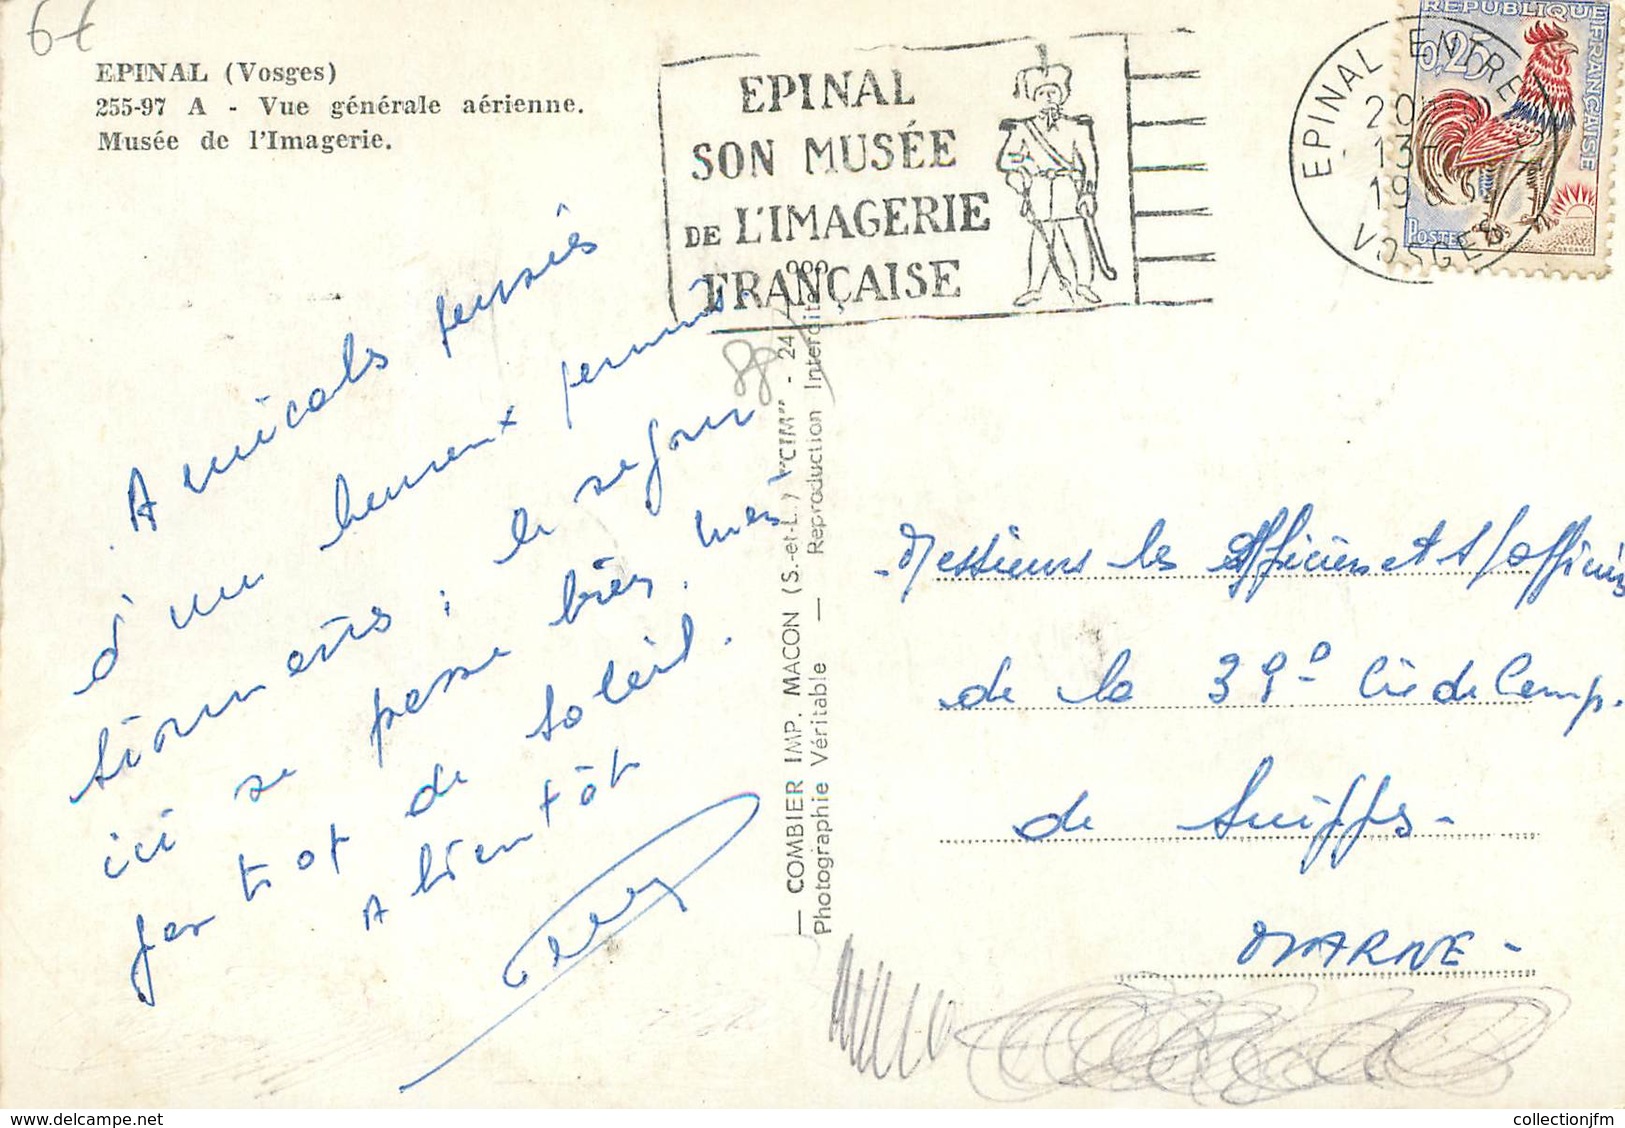 6€
EPINAL (Vosges)
255-97 A - Vue générale aérienne.
Musée de l'Imagerie.
EPINAL
SON MUSÉE
DE L'IMAGERIE
FRANÇAISE
EPINAL ENTREPOT
VOSGES
20
13-
19
REPUBLIQUE FRANÇAISE
0,25
POSTES
Amicals pensés
d'un heureux permis
sionnaires ; le séjour
ici se passe très bien, mais
pas trop de soleil.
A bientôt
— COMBIER IMP. MACON (S.-et-L.) "CIM" - 24
Photographie Véritable — Reproduction Interdite
Messieurs les Officiers et s/officiers
de la 39º Cie de Camp.
de Suippes -
MARNE -
delcampe.net
collectionjfm